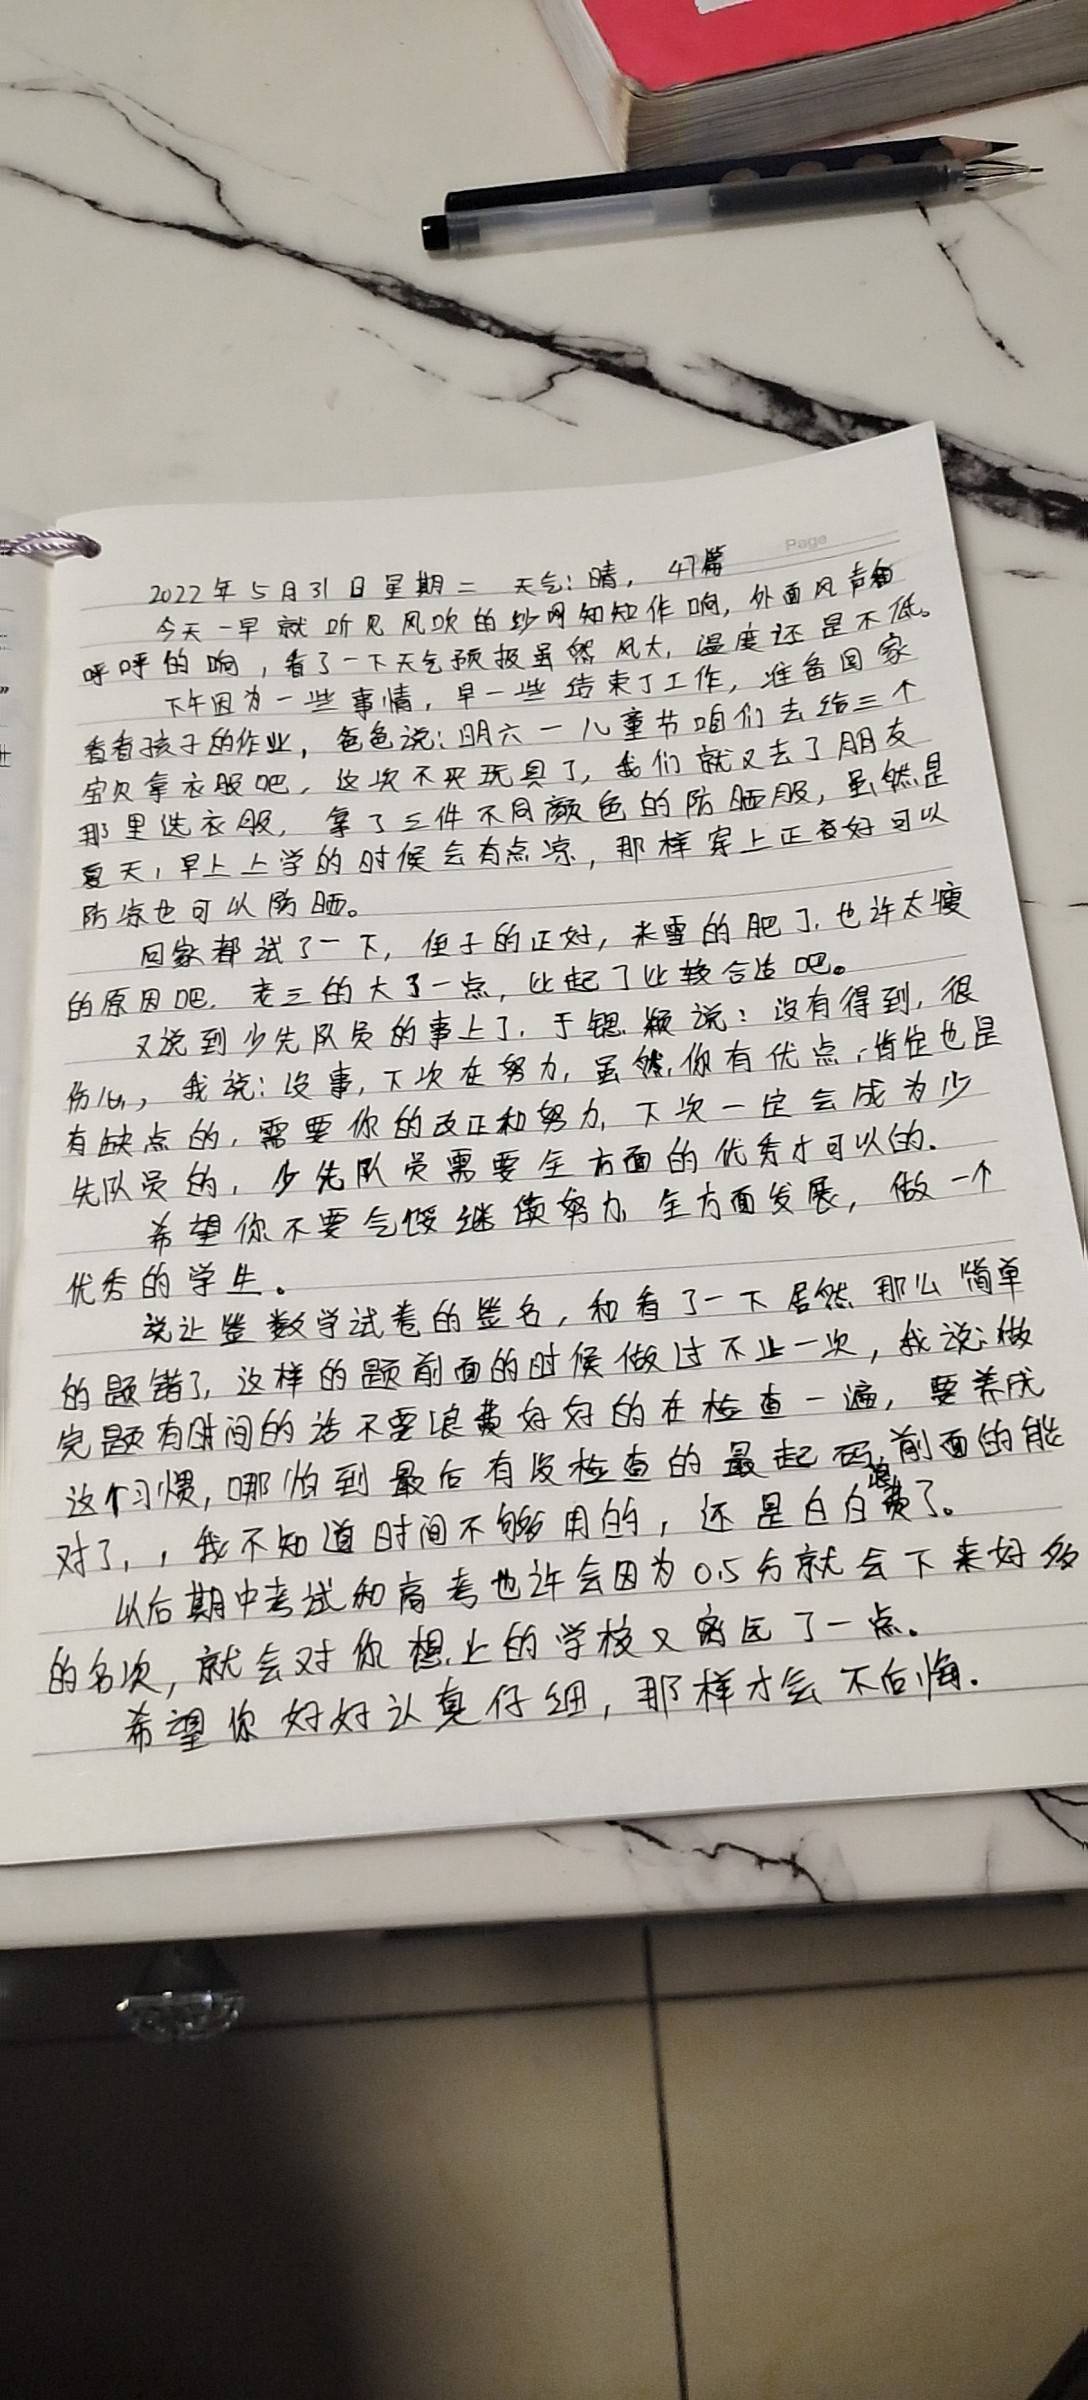 Page
2022年5月31日星期二 天气:晴, 47篇
今天一早就听见风吹的纱网知知作响,外面风声
呼呼的响,看了一下天气预报虽然风大,温度还是不低。
下午因为一些事情,早一些结束了工作,准备回家
看看孩子的作业,爸爸说:明六一儿童节咱们去给三个
宝贝拿衣服吧,这次不买玩具了,我们就又去了朋友
那里选衣服,拿了三件不同颜色的防晒服,虽然是
夏天,早上上学的时候会有点凉,那样穿上正好可以
防凉也可以防晒。
回家都试了一下,侄子的正好,米雪的肥了,也许太瘦
的原因吧,老三的大了一点,比起了比较合适吧。
又说到少先队员的事上了,于锶颖说:没有得到,很
伤心,我说:没事,下次在努力,虽然你有优点,肯定也是
有缺点的,需要你的改正和努力,下次一定会成为少
先队员的,少先队员需要全方面的优秀才可以的.
希望你不要气馁继续努力,全方面发展,做一个
优秀的学生。
说让签数学试卷的签名,和看了一下居然那么简单
的题错了,这样的题前面的时候做过不止一次,我说:做
完题有时间的话不要浪费好好的在检查一遍,要养成
这个习惯,哪怕到最后有没检查的最起码前面的能
对了,,我不知道时间不够用的,还是白白浪费了。
以后期中考试和高考也许会因为0.5分就会下来好多
的名次,就会对你想上的学校又离远了一点。
希望你好好认真仔细,那样才会不后悔.